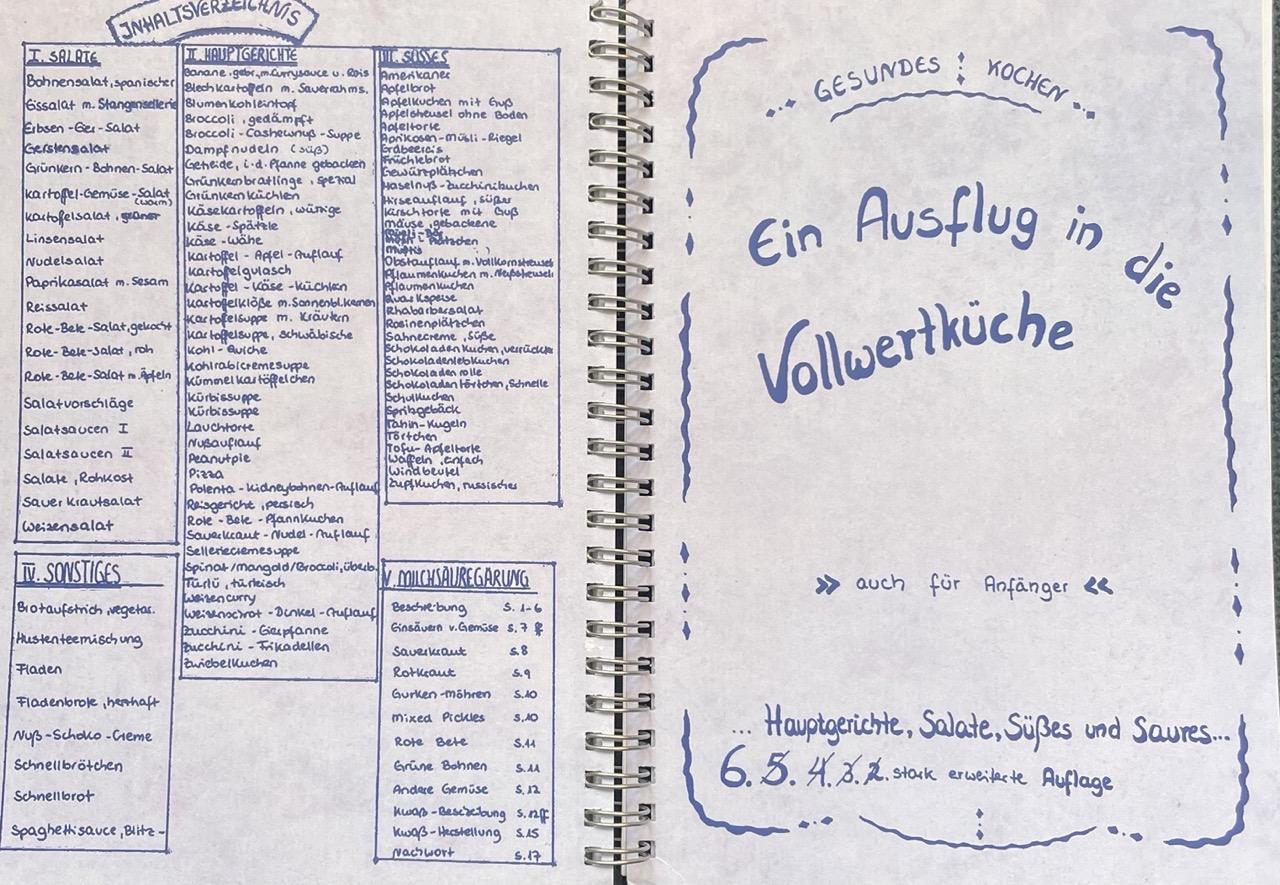 INHALTSVERZEICHNIS
I. SALATE
Bohnensalat, spanischer
Eissalat m. Stangensellerie
Erbsen-Eier-Salat
Gerstensalat
Grünkern-Bohnen-Salat
Kartoffel-Gemüse-Salat
(warm)
Kartoffelsalat, grüner
Linsensalat
Nudelsalat
Paprikasalat m. Sesam
Reissalat
Rote-Bete-Salat, gekocht
Rote-Bete-Salat, roh
Rote-Bete-Salat m. Äpfeln
Salatvorschläge
Salatsaucen I
Salatsaucen II
Salate, Rohkost
Sauerkrautsalat
Weizensalat
II. HAUPTGERICHTE
Banane, gebr., m. Currysauce u. Reis
Blechkartoffeln m. Sauerrahms.
Blumenkohleintopf
Broccoli, gedämpft
Broccoli-Cashewnuß-Suppe
Dampfnudeln (süß)
Geteide, i.d. Pfanne gebacken
Grünkernbratlinge, spezial
Grünkern Küchlen
Käsekartoffeln, würzige
Käse-Spätzle
Käse-Wähe
Kartoffel-Apfel-Auflauf
Kartoffelgulasch
Kartoffel-Käse-Küchlen
Kartoffelklöße m. Sonnenbl.kernen
Kartoffelsuppe m. Kräutern
Kartoffelsuppe, schwäbische
Kohl-Quiche
Kohlrabicremesuppe
Kümmelkartöffelchen
Kürbissuppe
Kürbissuppe
Lauchtorte
Nußauflauf
Peanutpie
Pizza
Polenta-Kidneybohnen-Auflauf
Reisgericht, persisch
Rote-Bete-Pfannkuchen
Sauerkraut-Nudel-Auflauf
Selleriecremesuppe
Spinat/Mangold/Broccoli, überb.
Türlü, türkisch
Weizencurry
Weizenschrot-Dinkel-Auflauf
Zucchini-Eierpfanne
Zucchini-Frikadellen
Zwiebelkuchen
III. SÜSSES
Amerikaner
Apfelbrot
Apfelkuchen mit Guß
Apfelstreusel ohne Boden
Apfeltorte
Aprikosen-Müsli-Riegel
Erdbeereis
Früchtebrot
Gewürzplätzchen
Haselnuß-Zucchinikuchen
Hirseauflauf, süßer
Kirschtorte mit Guß
Mäuse, gebackene
Obstauflauf m. Vollkornstreusel
Pflaumenkuchen m. Nußstreuseln
Pflaumenkuchen
Quarkspeise
Rhabarbersalat
Rosinenplätzchen
Sahnecreme, Süße
Schokoladenkuchen, verrückter
Schokoladenlebkuchen
Schokoladenrolle
Schokoladentörtchen, Schnelle
Schulkuchen
Spritzgebäck
Tahin-Kugeln
Törtchen
Tofu-Apfeltorte
Waffeln, einfach
Windbeutel
Zupfkuchen, russischer
IV. SONSTIGES
Brotaufstrich, vegetar.
Hustenteemischung
Fladen
Fladenbrote, herzhaft
Nuß-Schoko-Creme
Schnellbrötchen
Schnellbrot
Spaghettisauce, Blitz-
V. MILCHSÄUREGÄRUNG
Beschreibung S. 1-6
Einsäuern v. Gemüse S. 7 ff
Sauerkraut S.8
Rotkraut S.9
Gurken-Möhren S.10
Mixed Pickles S.10
Rote Bete S.11
Grüne Bohnen S.11
Andere Gemüse S.12
Kwaß-Beschreibung S.12ff
Kwaß-Herstellung S.15
Nachwort S.17
GESUNDES KOCHEN
Ein Ausflug in die
Vollwertküche
» auch für Anfänger «
... Hauptgerichte, Salate, Süßes und Saures...
6. 5. 4. 3. 2. stark erweiterte Auflage